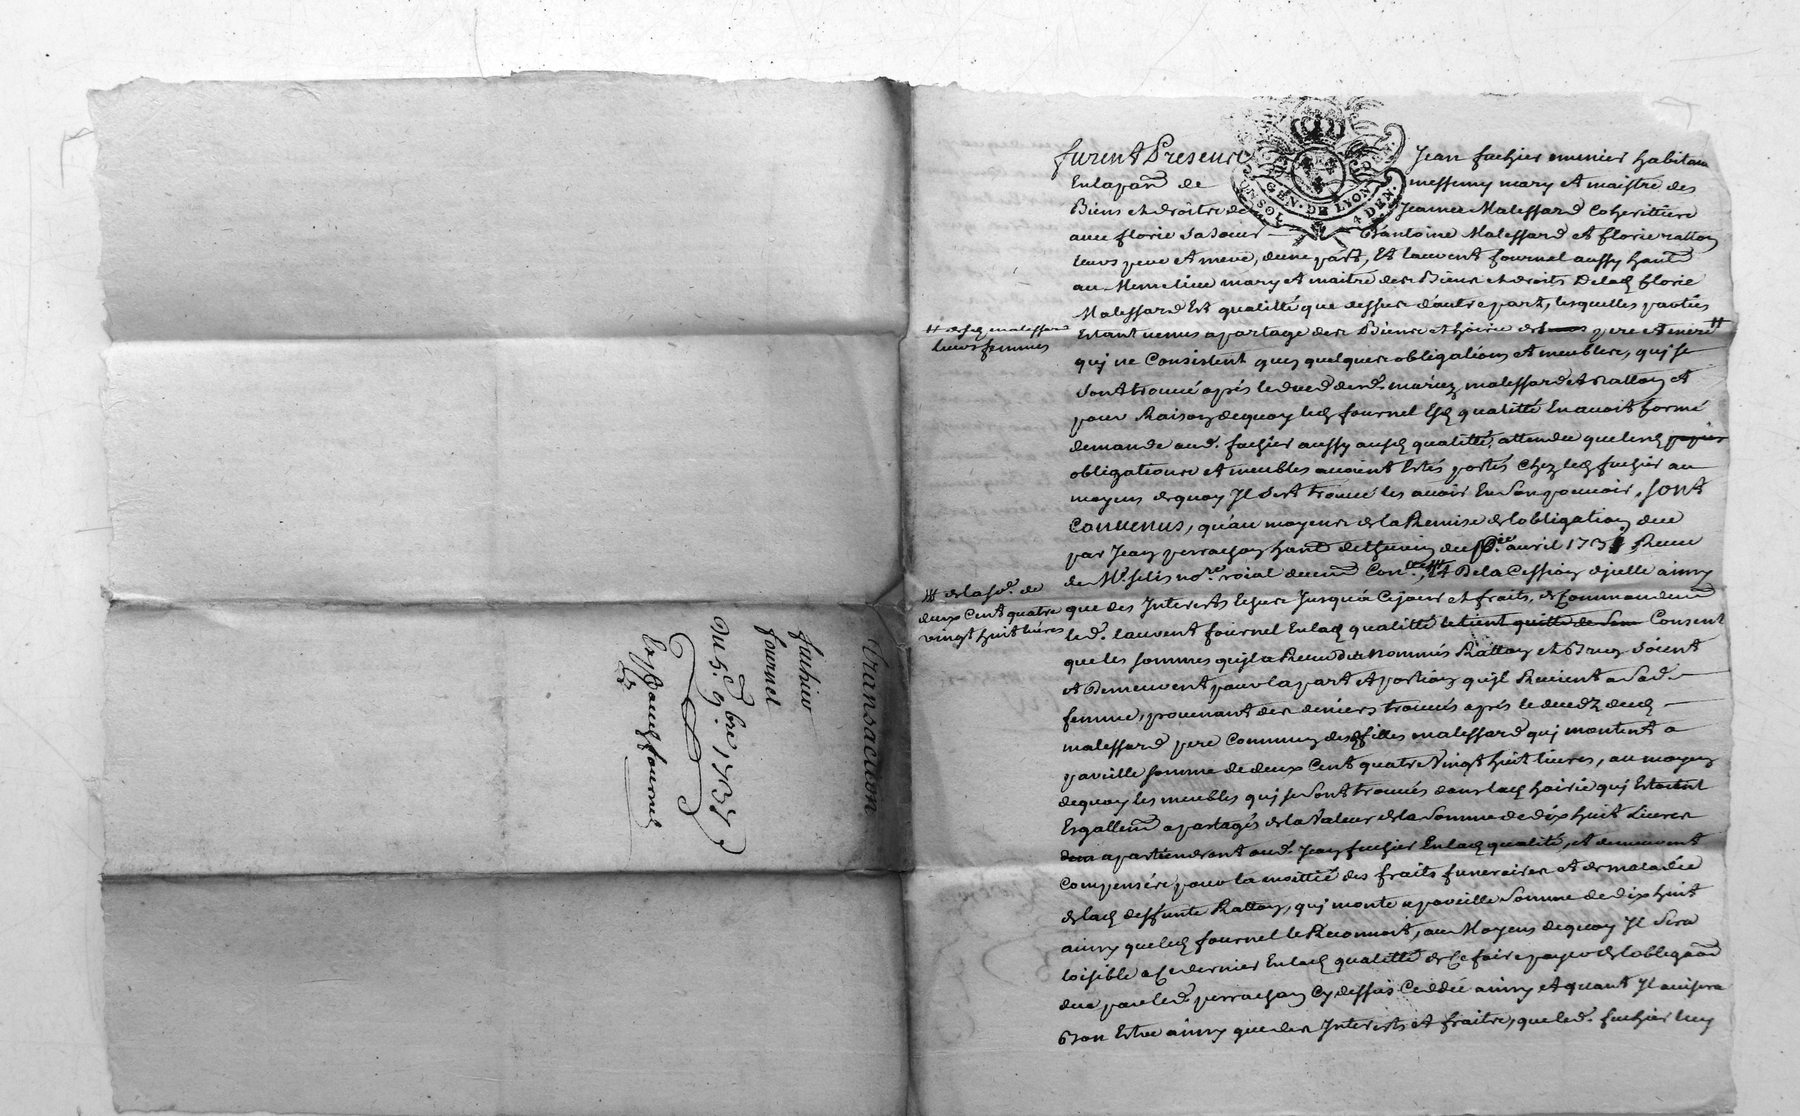 Transaction
fuchier
fournel
Du 5e 9bre 1735
fournel
GEN. DE LYON
UN SOL 4 DEN.
furent Presents Jean fuchier munier habitant
En la parr de messimy mary et maistre des
Biens et droits de Jeanne Malessard Coherittiere
avec florie sa soeur D'antoine Malessard et florie rattou
leurs pere et mere, d'une part, Et laurent fournel aussy hant
au Meme lieu mary et maitre des Biens et droits De lad florie
Malessard Et qualitté que dessus d'autre part, lesquelles parties
Estant venus a partage des Biens et hoirie des pere et mere #
# desd malessard
leurs femmes
quj ne Consistent qu'en quelques obligations et meubles, quj se
sont trouvé aprés le deced desd. mariez malessard et rattou et
pour Raison dequoy led fournel Esd qualitté En avoit formé
demande aud. fuchier aussy ausd qualitté, attendu que lesd papier
obligations et meubles avoient Estés portés Chez led fuchier au
moyens dequoy Jl s'est trouvé les avoir En son pouvoir, sont
Convenus, qu'au moyens de la Remise de l'obligation due
par Jean perrachon hant de du avril 173 Receu
de Me selis nore roial deuem Conlée, # Et De la Cession d'jcelle ainsy
# de la se. de
deux Cent quatre
vingt huit livres
que des Jnterests Echus Jusqu'a Ce jour et fraits, de Commandem
led. laurent fournel En lad qualitté le tient quitte de Consent
que les sommes qu'jl a Receu des nommés Rattou et Brun soient
et Demeurent pour la part et portion qu'jl Revient a sad.
femme, provenant des deniers trouvés aprés le decedz dud
malessard pere Commun desd filles malessard quj montent a
pareille somme de deux Cent quatre Vingt huit livres, au moyen
dequoy les meubles quj se sont trouvés dans lad hoirie quj Estoient
Esgallem a partagés de la Valeur de la somme de dix huit Livres
apartiendront aud. Jean fuchier En lad qualitté, et demeurent
Compensées pour la moittié des fraits funeraires et de maladie
de lad deffunte Rattou, quj monte a pareille somme de dix huit
ainsy que led fournel le Reconnoit, au Moyens dequoy Jl sera
loisible a Ce dernier En lad qualitté de se faire payer de l'obligaon
due par led. perrachon Cy dessus Ceddée ainsy et quant Jl avisera
Bon Estre ainsy que des Jnterests et fraits, que led. fuchier luy